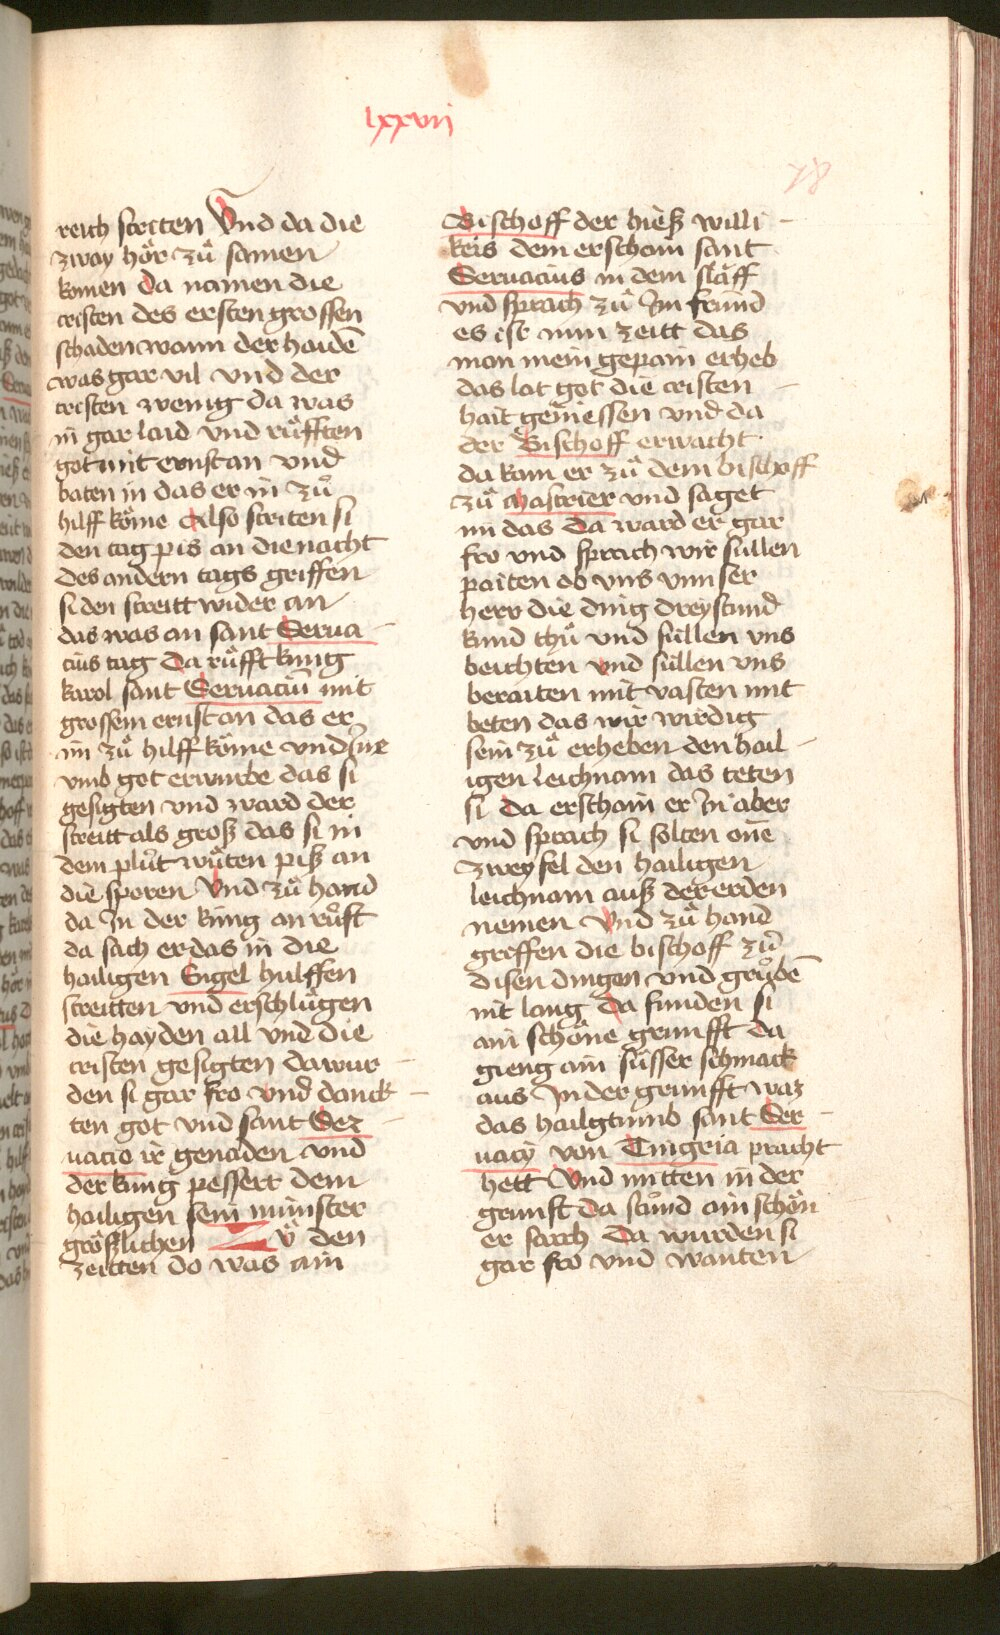 lxxvii
78
reich stritten Vnd da die
zway hör zuͦ samen
komen da namen die
cristen des ersten grossen
schaden wann der haidē
was gar vil vnd der
cristen wenig da was
in gar laid vnd ruͤfften
got mit ernst an vnd
baten in das er in zuͦ
hilff köme Also striten si
den tag pis an die nacht
des andern tags griffen
si den streitt wider an
das was an sant Serua
cius tag da ruͤfft kung
karol sant Seruaciū mit
grossem ernst an das er
im zuͦ hilff köme vnd
vmb got erwurbe das si
gesigten vnd ward der
streitt als groß das si in
dem pluͤt wuͤten piß an
die sporen Vnd zuͦ hand
da In der küng an ruͤfft
da sach er das in die
hailigen Engel hulffen
streitten vnd erschluͤgen
die hayden all vnd die
cristen gesigten da wur
den si gar fro vnd danck
ten got vnd sant Ser
uacio ir genaden vnd
der kung pessert dem
hailigen sein münster
größlichen Zuͦ den
zeitten do was ain
Bischoff der hieß willi
keis dem erschain sant
Seruacius in dem slaͤff
vnd sprach zuͦ Im frund
es ist nun zeitt das
man mein gepain erheb
das lat got die cristen
hait geniessen vnd da
der Bischoff erwacht
da kam er zuͦ dem bischoff
zuͦ Mastrier vnd saget
im das Da ward er gar
fro vnd sprach wir süllen
paiten ob vns vnnser
herr die ding dreystund
kund thuͦ vnd süllen vns
beichten vnd süllen vns
beraiten mit vasten mit
beten das wir wirdig
sein zuͦ erheben den hail
igen leichnam das teten
si da erschain er In aber
vnd sprach si solten one
zweyfel den hailigen
leichnam auß der erden
nemen Vnd zuͦ hand
greffen die bischoff zuͦ
disen dingen vnd gruͦbē
nit lang da funden si
ain schöne grunfft da
gieng ain süsser schmack
aus In der grunfft waz
das hailgtumb sant Ser
uacij von Tingria pracht
hett Vnd mitten in der
grunft da stuͦnd ain schön
er sarch da wurden si
gar fro vnd wanten